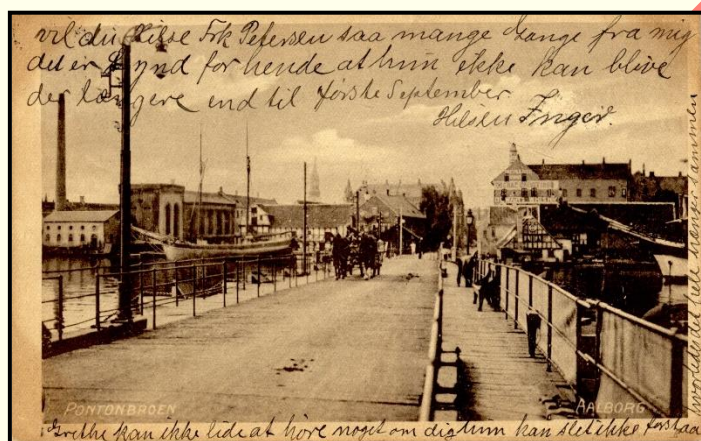 vil du Hilse Frk Petersen saa mange Gange fra mig
det er Synd for hende at hun ikke kan blive
der længere end til første September.
Hilsen Inger.
PONTONBROEN
AALBORG
Grethe kan ikke lide at höre noget om dig hun kan slet ikke forstaa
hvorledes det hele hænger sammen